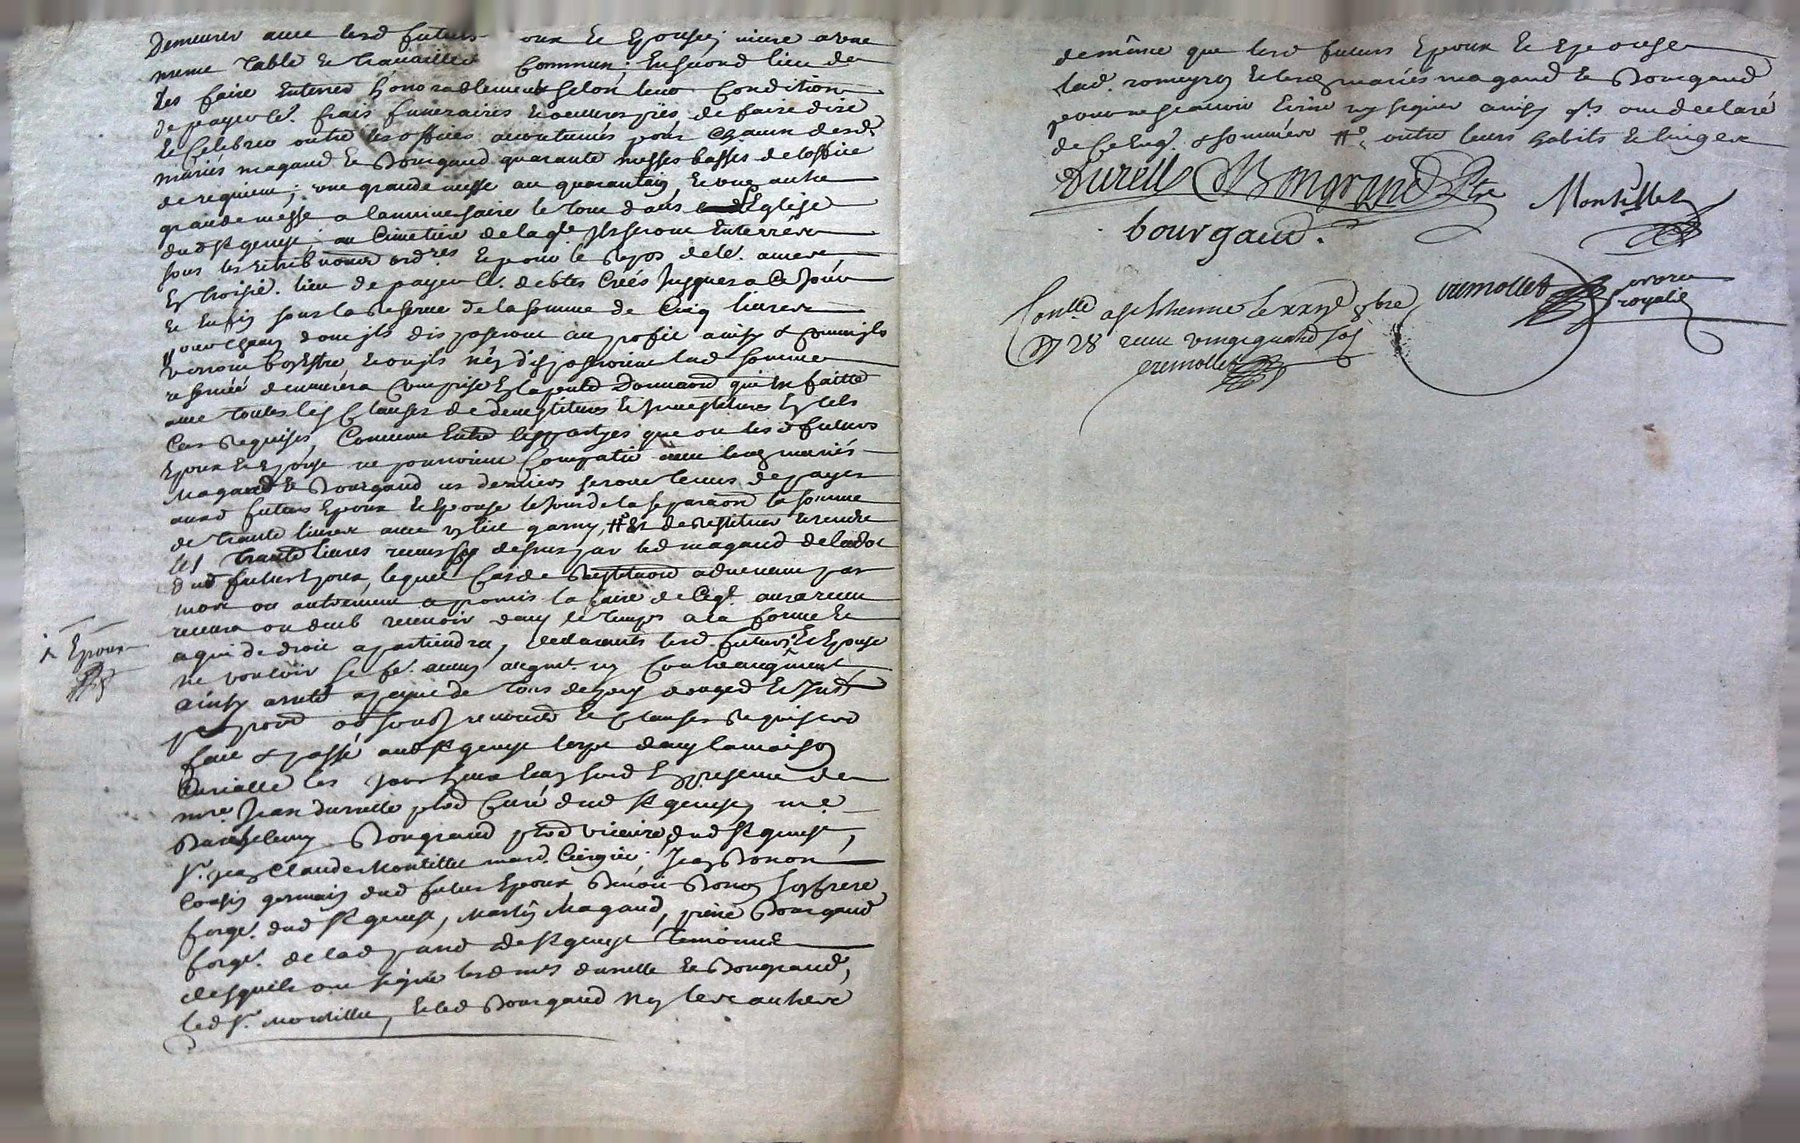 Demeurer avec lesd futurs oux et Epouse; vivre a une
meme table et travailler Commun; En second lieu de
Les faire Enterrer honorablement selon leur Condition
de payer le. frais funeraires de faire dire
et Celebrer outre les offices accoutumés pour Chacun desd.
mariés magaud et Bourgaud quarante messes basses de loffice
de requiem; une grande messe au quarantain, et une autre
grande messe a lanniversaire le tout dans Eglise
dud st genest, au Cimetiere de laqle Ils seront Enterrés
sous les retributions ordres et pour le Repos de le. ames,
En troisie. lieu de payer le. debtes Créés Jusques a Ce Jour
et Enfin sous la Reserve de la somme de Cinq livres
pour Chacun dont ils disposeront au profit ainsy & Comm ils
verront bon Estre, et ou ils n'en disposeroient lad somme
reservée demeurera Comprise En la pnte Donnaon qui faitte
avec toutes les Clauses de devestitures et Investitures En tels
Cas Requises, Convenu Entre les partyes que ou lesd futurs
Epoux et Epouse ne pourroient Compatir avec les mariés
Magaud et Bourgaud ces derniers seront tenus de payer
auxd futurs Epoux et Epouse le Jour de la separaon la somme
de trante livres avec un lict garny, et de Restituer et rendre
les trante livres reçues dessus par led magaud de la dot
dud futur Epoux, lequel Cas de Restitution advenant par
mort ou autrement a promis la faire de Ce qe. aura reçu
recevra ou deub recevoir dans le temps a la forme et
a qui de droit apartiendra, declarants lesd futurs et Epouse
ne vouloir se fe. aucun augmt. ny Contreaugment,
ainsy arreté a peyne de tous depens domages et Int
par pnd ob sous renoncé et Clauses Requises
fait & passé aud st genest lerpt dans la maison
Curialle les Jour et an susd En presence de
mre Jean Durelle ptre Curé dud st genest, mre
Barthelemy Bongrand ptre vicaire dud st genest,
Sr. Jean Claude Montillet mard. Cirgier; Jean Bonon
Cousin germain dud futur Epoux, Benoit Bonon son frere
forger. dud st genest, Martin Magaud, pierre Bourgaud
forger. de lad parr de st genest temoins
desquels ont signé lesd mres durelle et Bongrand,
led Sr. montillet, et led Bourgaud Non les autres
Epoux
de même que lesd futurs Epoux et Epouse
lad. romeyer et lesd mariés magaud et Bourgaud
pour ne sçavoir Ecrire ny signer ainsy qls ont declaré
de Ce Enq. & sommés outre leurs habits et linges
Durelle Bongrand Ptre Montillet
bourgaud.
Conlle a st Etienne le 8bre
28 reçu vingt quatre sols